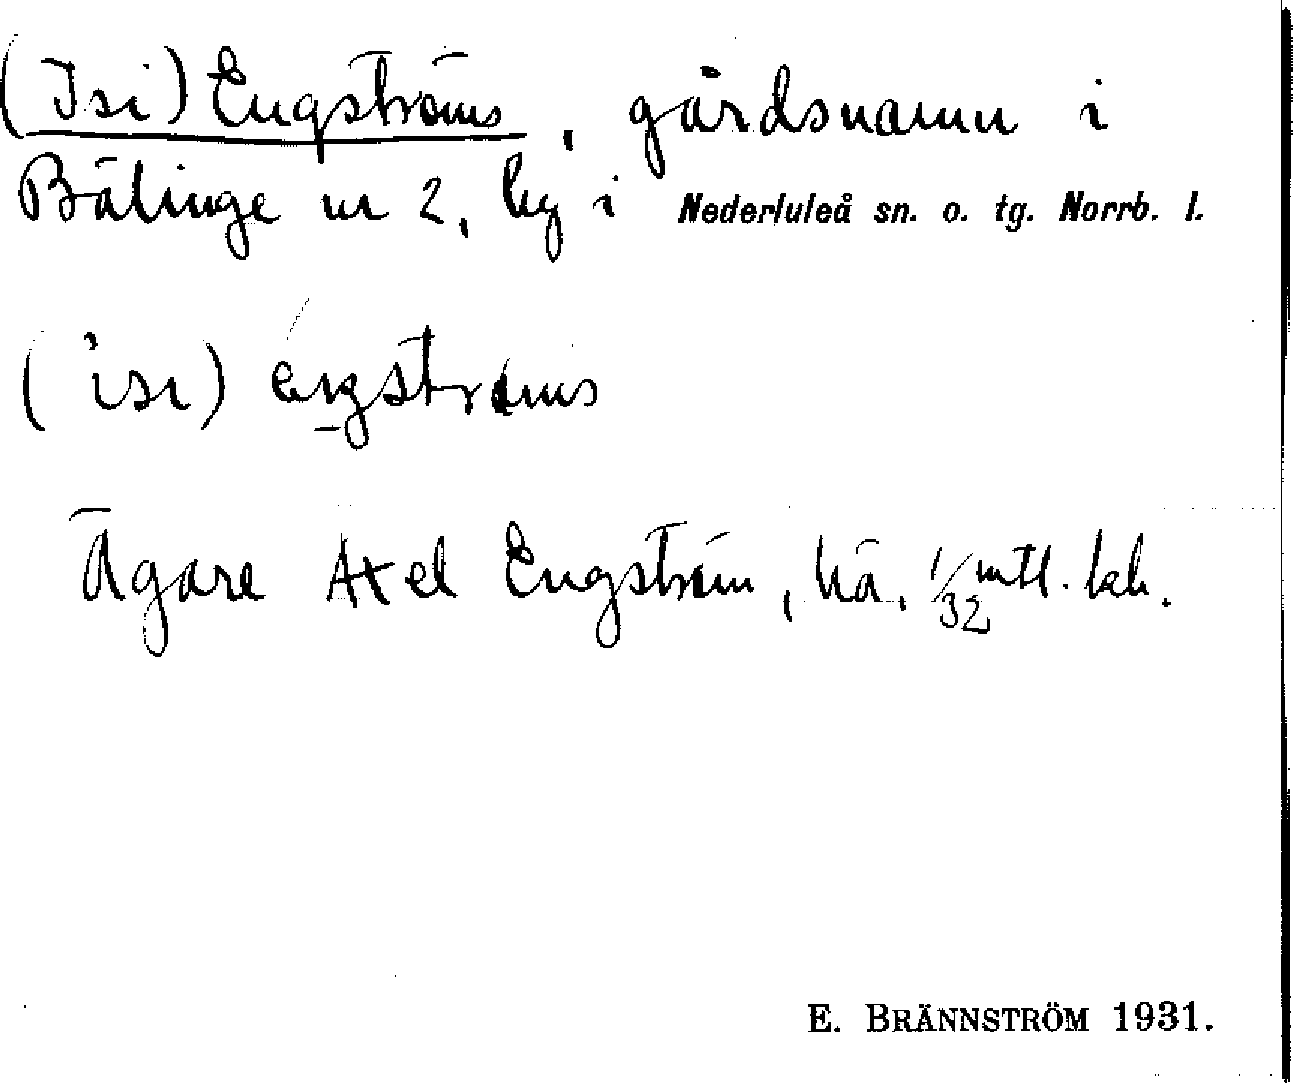 (Isi) Engströms, gårdsnamn i
Bälinge nr 2, by i Nederluleå sn. o. tg. Norrb. l.
(isi) eŋgströms
Ägare Axel Engström, 1/32 mtl.
E. BRÄNNSTRÖM 1931.